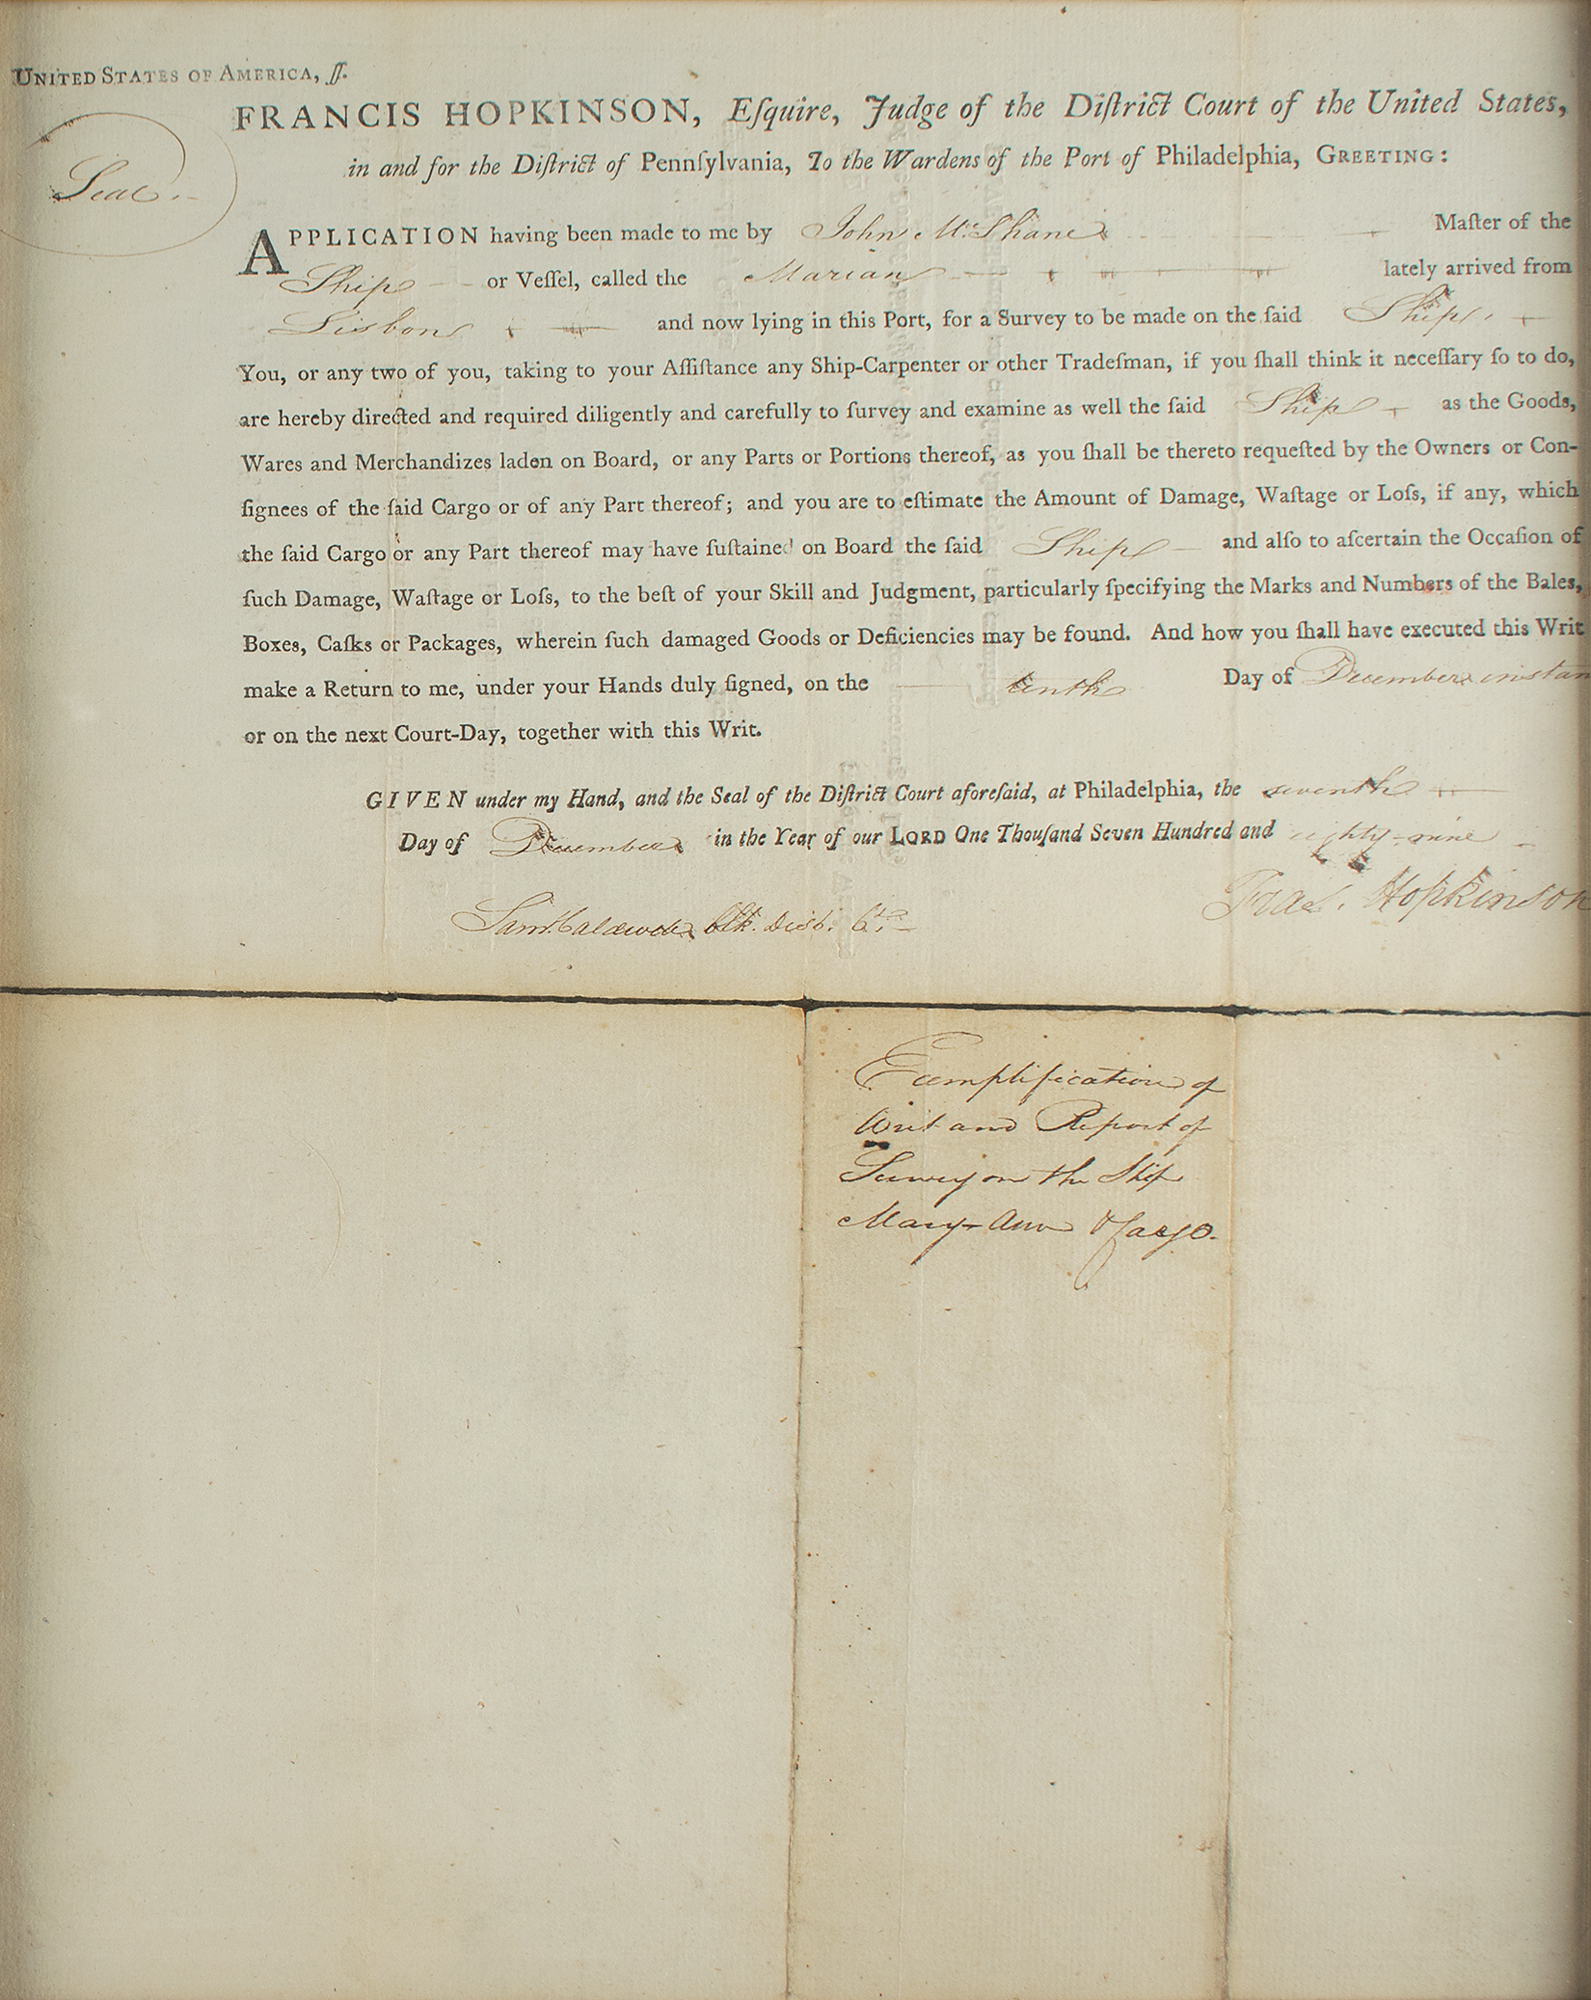 UNITED STATES OF AMERICA, ſſ.
Seal.
FRANCIS HOPKINSON, Eſquire, Judge of the Diſtrict Court of the United States,
in and for the Diſtrict of Pennſylvania, To the Wardens of the Port of Philadelphia, GREETING:
APPLICATION having been made to me by John McShane Maſter of the
Ship or Veſſel, called the Marian lately arrived from
Lisbon and now lying in this Port, for a Survey to be made on the ſaid Ship
You, or any two of you, taking to your Aſſiſtance any Ship-Carpenter or other Tradeſman, if you ſhall think it neceſſary ſo to do,
are hereby directed and required diligently and carefully to ſurvey and examine as well the ſaid Ship as the Goods,
Wares and Merchandizes laden on Board, or any Parts or Portions thereof, as you ſhall be thereto requeſted by the Owners or Con-
ſignees of the ſaid Cargo or of any Part thereof; and you are to eſtimate the Amount of Damage, Waſtage or Loſs, if any, which
the ſaid Cargo or any Part thereof may have ſuſtained on Board the ſaid Ship and alſo to aſcertain the Occaſion of
ſuch Damage, Waſtage or Loſs, to the beſt of your Skill and Judgment, particularly ſpecifying the Marks and Numbers of the Bales,
Boxes, Caſks or Packages, wherein ſuch damaged Goods or Deficiencies may be found. And how you ſhall have executed this Writ
make a Return to me, under your Hands duly ſigned, on the tenth Day of December instan
or on the next Court-Day, together with this Writ.
GIVEN under my Hand, and the Seal of the Diſtrict Court aforeſaid, at Philadelphia, the seventh
Day of December in the Year of our LORD One Thouſand Seven Hundred and eighty-nine
Fras. Hopkinson
Saml. Caldwell Clk. Dist. Ct.
Exemplification of
Writ and Report of
Survey on the Ship
Mary-Ann & Cargo.